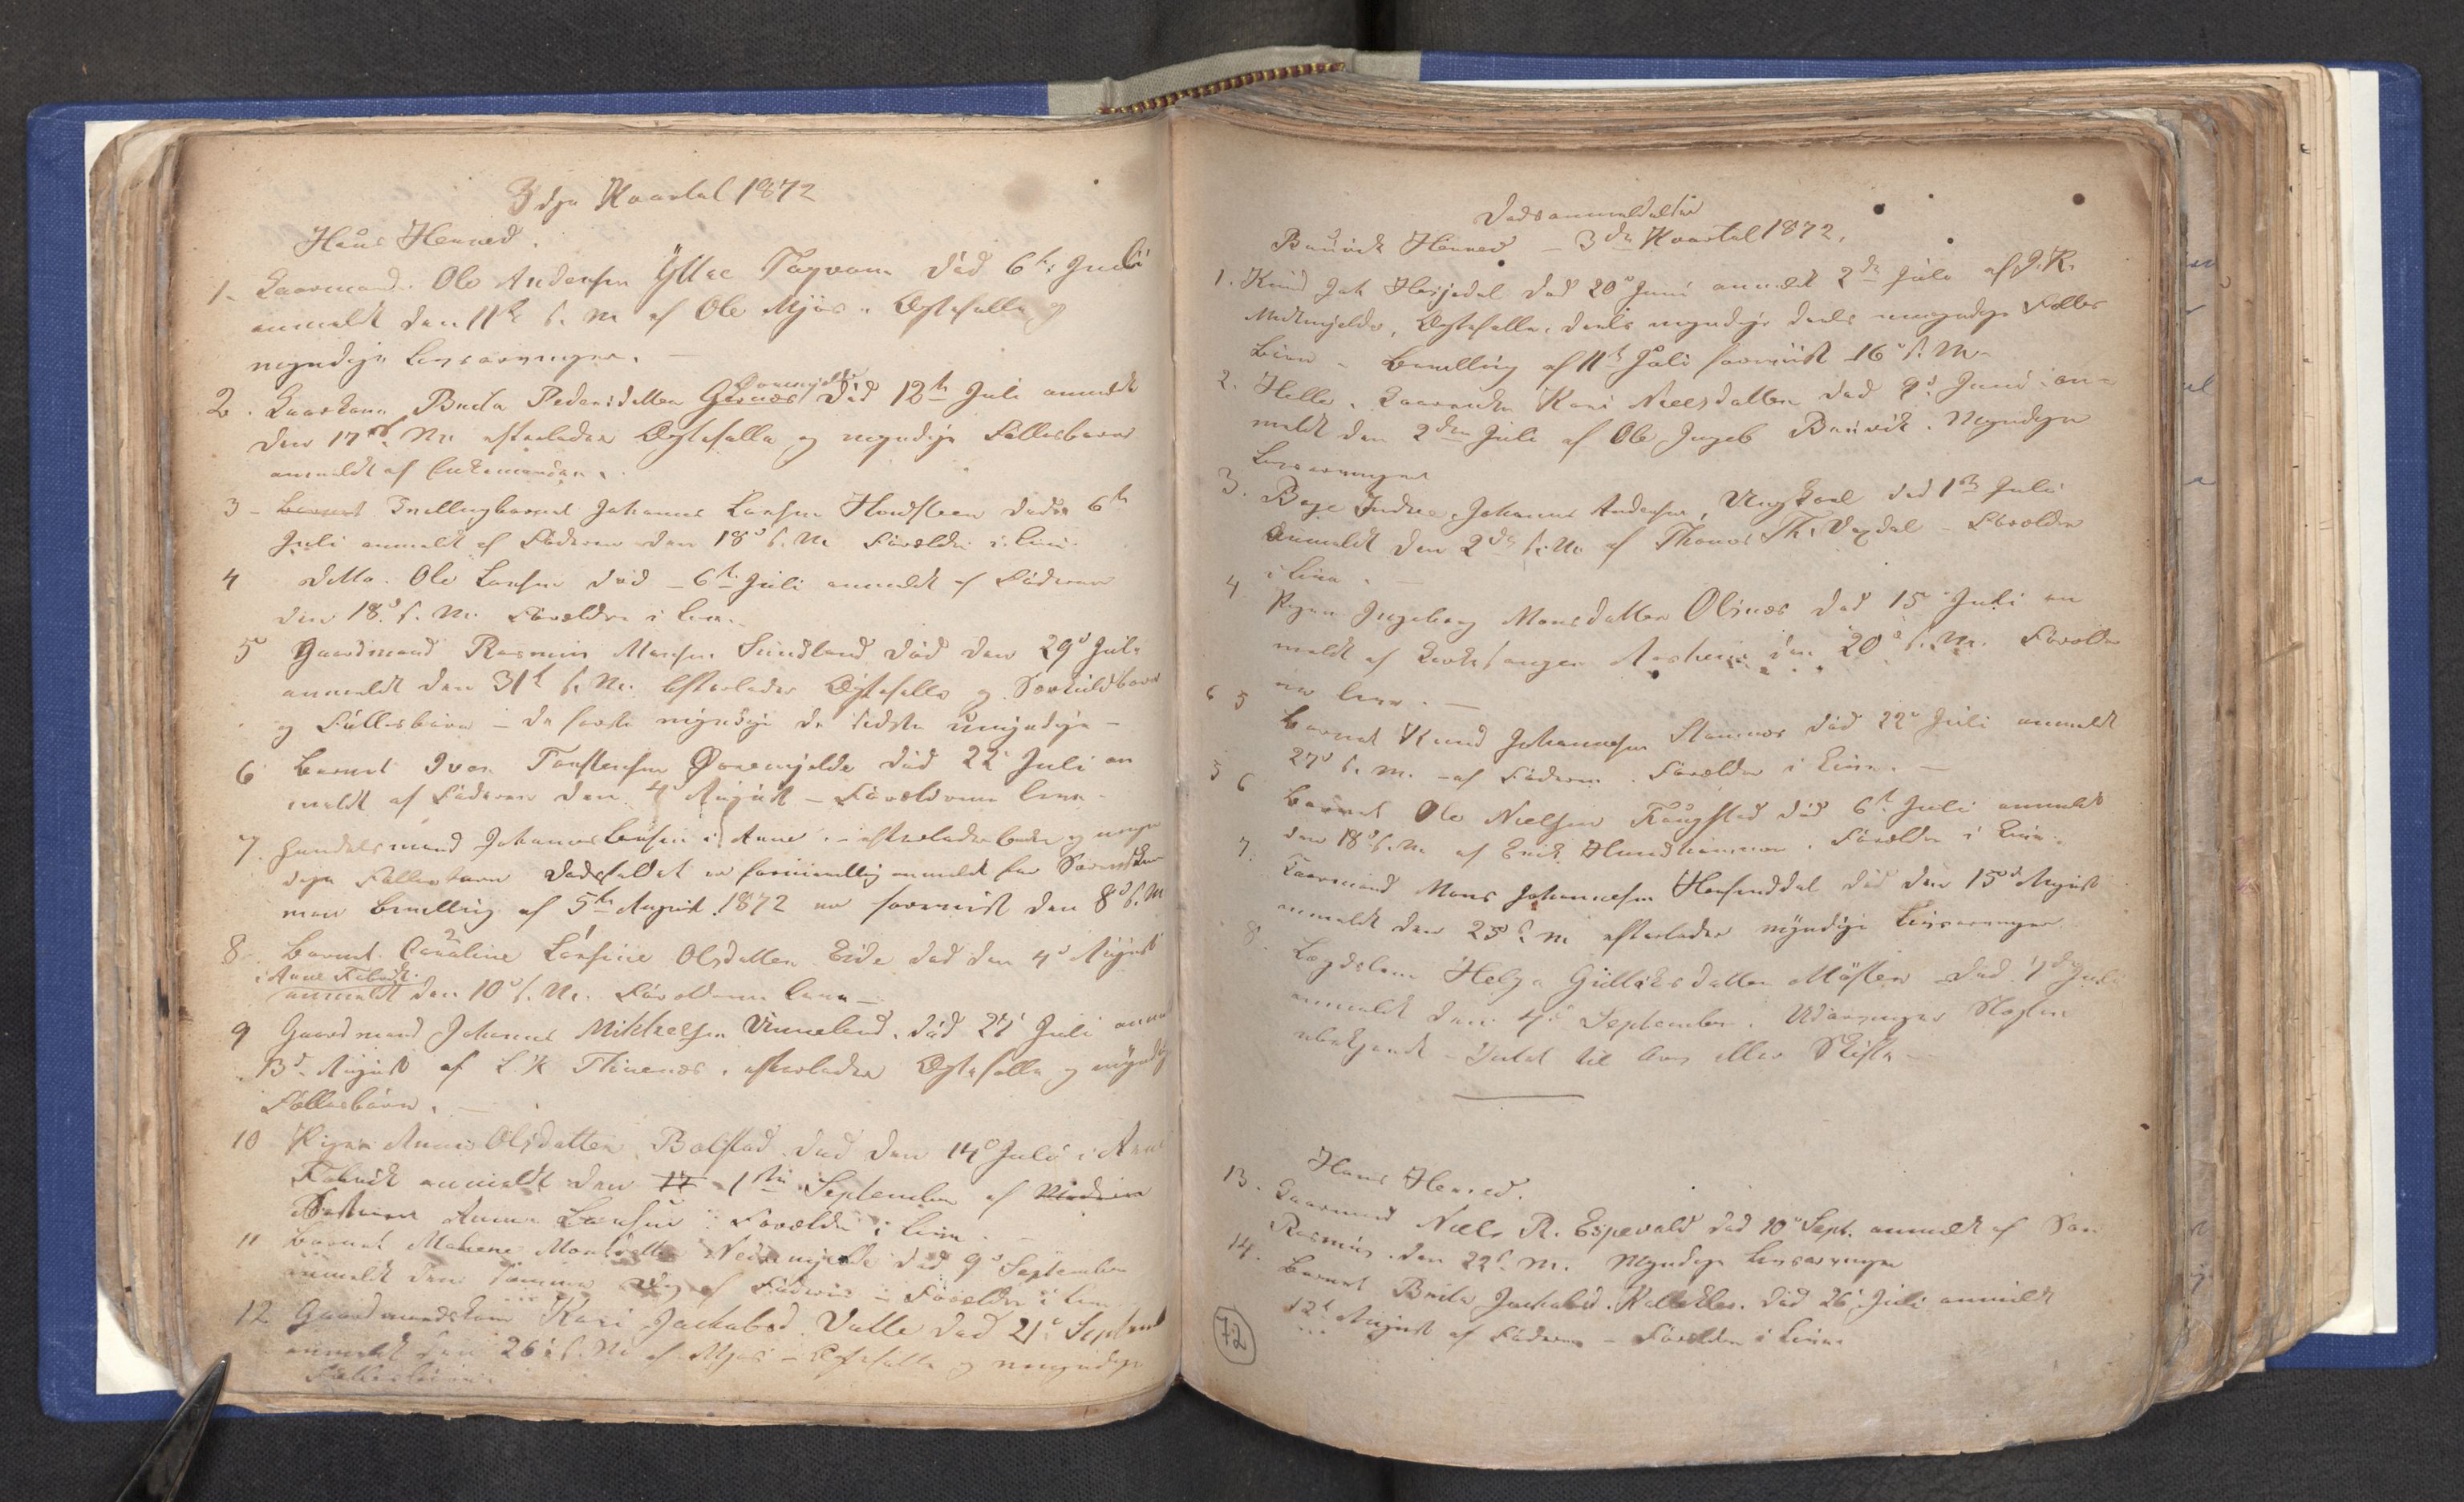 3die Kvartal 1872
Haus Herred.
1. Kaarmand Ole Andersen Yttre Tagvam Død 6te Juli
anmeldt den 11te s. M. af Ole Mjøs. Ægtefælle og
myndige Livsarvinger. —
Øvremjelde
2. Kaarkone Brita Pedersdatter Gjernæs Død 12te Juli anmeldt
den 17de s. M. efterlader Ægtefælle og myndige Fællesbørn
anmeldt af Enkemanden.
3 - Barnet Tvillingbarnet Johannes Larsen Hordsleen døde 6te
Juli anmeldt af Faderen den 18de s. M. Forældre i live
4 ditto. Ole Larsen død - 6te Juli anmeldt af Faderen
den 18d s. M. Forældre i live.
5 Gaardmand Rasmus Monsen Sundland død den 29d Juli
anmeldt den 31te s. M. Efterlader Ægtefælle og Særkuldbørn
og Fællesbørn - de første myndige de sidste umyndige -
6 Barnet Iver Torstensen Øvremjelde død 22d Juli an
meldt af Faderen den 4d August - Forældrene leve.
7. Handelsmand Johannes Larsen i Arne. - efterlader Enke og umyn
dige Fællesbørn Dødsfaldet er formentlig anmeldt for Sorenskri
ver Bevilling af 5te August 1872 er forevist den 8d s. M
8. Barnet Caroline Larsine Olsdatter Eide død den 4d August
i Arne Fabrik.
anmeldt den 10d s. M. Forældrene leve -
9 Gaardmand Johannes Mikkelsen Unneland. død 27d Juli anm
13d August af L K Thunes. efterlader Ægtefælle og myndig
Fællesbørn. —
10 Pigen Anna Olsdatter Bolstad død den 14d Juli i Arne
Fabrik anmeldt den 17 1ste September af Moderen
Anna Larsen. Forældre i live.
11 Barnet Malene Monsdatter Nedremjelde død 9d September
anmeldt den samme Dag af Faderen - Forældre i live
12 Gaardmandskone Kari Jacobsd. Valle død 21d Septemb
anmeldt den 26d s. M. af Mjøs - Ægtefælle og umyndige
Fællesbørn.
Dødsanmeldelser
Bruvik Herred - 3die Kvartal 1872.
1. Knud Joh Hesjedal død 20d Juni anmeldt 2den Juli af J. K.
Midtmjelde, Ægtefælle, deels myndige deels umyndige Fælles
børn - Bevilling af 11te Juli forevist 16d s. M.
2. Helle. Kaarenke Kari Nielsdatter død 9d Juni an-
meldt den 2den Juli af Ole Ingeb Bruvik. Myndige
Livsarvinger
3. Boge Indre. Johannes Andersen, Ungkarl død 1ste Juli
Anmeldt den 2den s. M. af Thomas Th. Vaxdal - Forældre
i live.
4 Pigen Ingeborg Monsdatter Olsnæs død 15d Juli an
meldt af Kirkesanger Askeim den 20d s. M. Forældre
ne leve. —
6 5 Barnet Knud Johannesen Stamnæs død 22d Juli anmeldt
27d s. M. - af Faderen. Forældre i live. —
5 6 Barnet Ole Nielsen Fougstad død 6te Juli anmeldt
den 18d s. M. af Erik Hundhammer. Forældre i live.
7. Kaarmand Mons Johannesen Hesjedal død den 15d August
anmeldt den 25d s. M. efterlader myndige Livsarvinger
8. Lægdslem Helga Gulliksdatter Møster død 7de Juli
anmeldt den 4d September. Udarvinger Slægten
ubekjendt - Intet til Arv eller Skifte —
Haus Herred.
13. Gaarmand Niels R. Espevold død 10d Sept. anmeldt af Søn
Rasmus den 22d s. M. Myndige Livsarvinger
14. Barnet Brita Jacobsd. Kalleklev. død 26d Juli anmeldt
12te August af Faderen - Forældre i live.
72